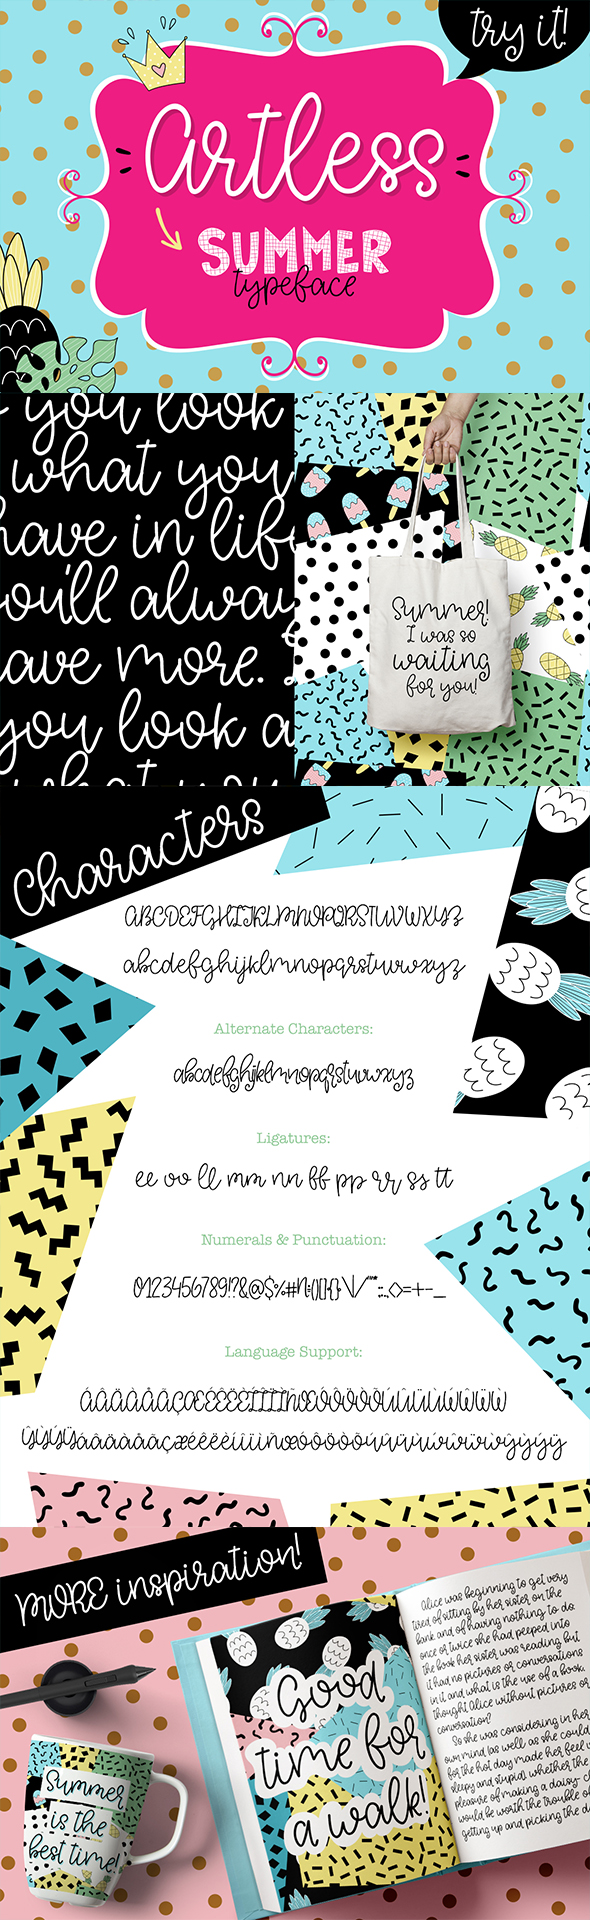 try it!
artless
SUMMER
typeface
you look
what you
have in life
you'll alway
have more.
you look a
what you
Summer!
I was so
waiting
for you!
characters
ABCDEFGHIJKLMNOPQRSTUVWXYZ
abcdefghijklmnopqrstuvwxyz
Alternate Characters:
abcdefghijklmnopqrstuvwxyz
Ligatures:
ee oo ll mm nn ff pp rr ss tt
Numerals & Punctuation:
0123456789!?&@$%#
Language Support:
MORE inspiration!
Summer
is the
best time!
Good
time for
a walk!
Alice was beginning to get very
tired of sitting by her sister on the
bank and of having nothing to do:
once or twice she had peeped into
the book her sister was reading but
it had no pictures or conversations
in it and what is the use of a book,
thought Alice without pictures or
conversation?
So she was considering in her
own mind (as well as she could
for the hot day made her feel v
sleepy and stupid), whether the
pleasure of making a daisy-c
would be worth the trouble of
getting up and picking the d